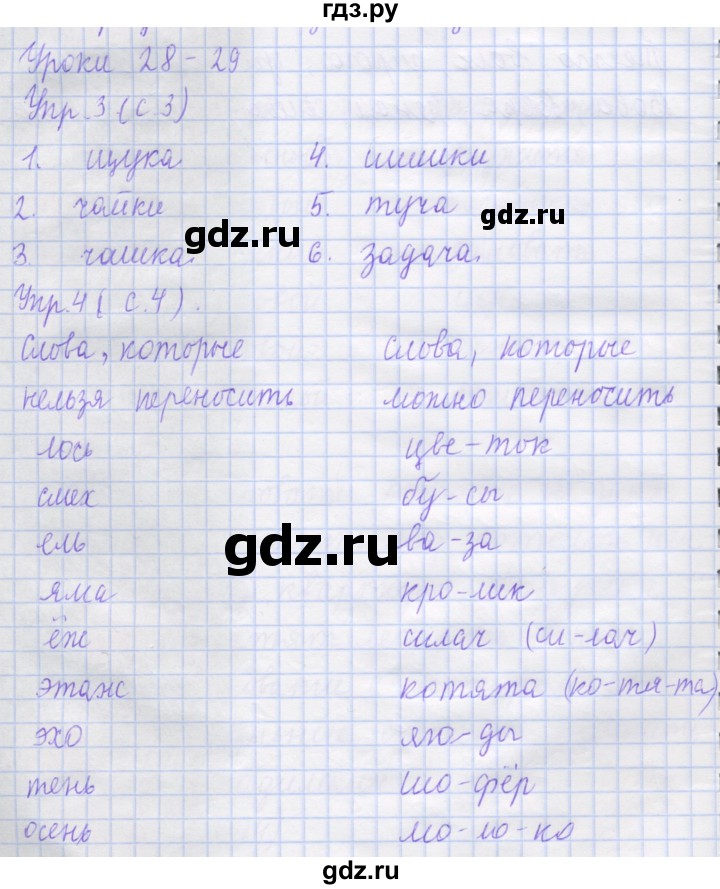 гдз.ру
Уроки 28-29
Упр.3 (с.3)
1. щука 4. шишки
2. чайки 5. туча
3. чашка. 6. задача.
gdz.ru
gdz.ru
Упр.4 (с.4).
Слова, которые Слова, которые
нельзя переносить можно переносить
лось цве-ток
смех бу-сы
gdz.ru
ель ва-за
яма кро-лик
ёж силач (си-лач)
этаж котята (ко-тя-та)
эхо яго-ды
тень шо-фёр
осень мо-ло-ко
gdz.ru